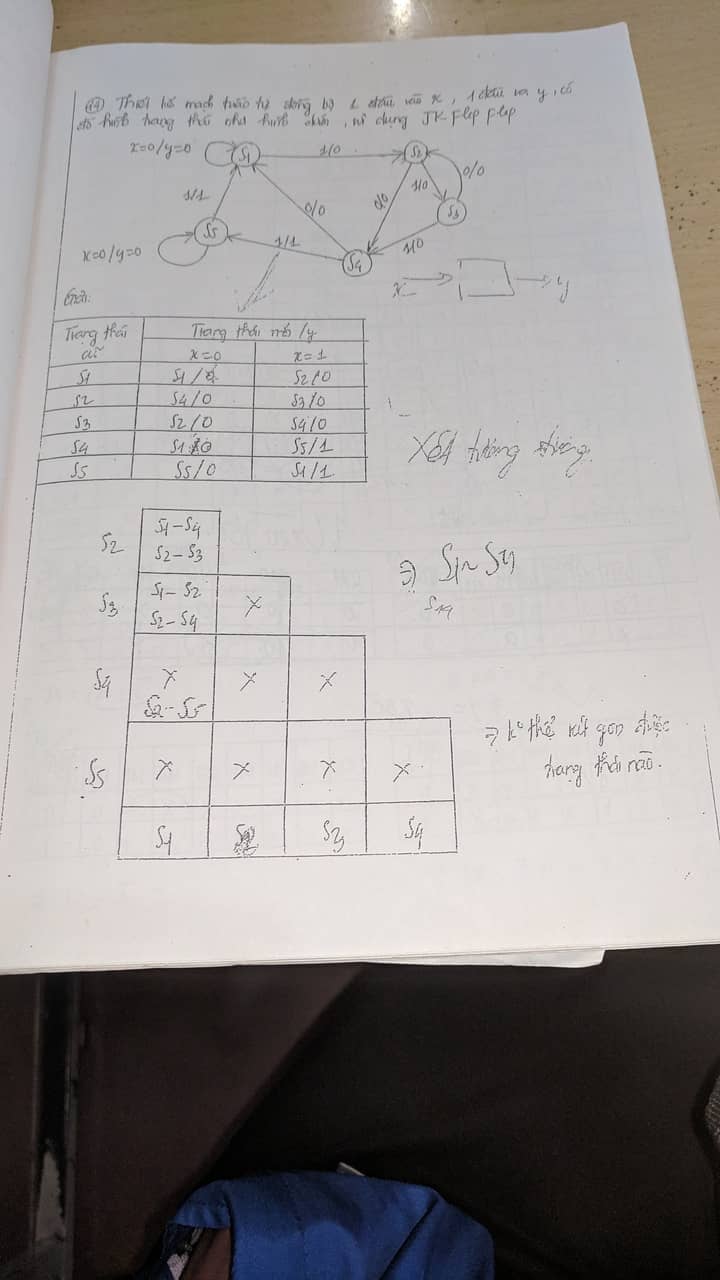 14) Thiết kế mạch tuần tự đồng bộ 1 đầu vào x, 1 đầu ra y, có
đồ hình trạng thái như hình dưới, sử dụng JK-Flip Flop
x=0/y=0
S1
1/0
S2
0/0
1/1
0/0
0/0
1/0
S3
S5
1/1
1/0
x=0/y=0
S4
x
y
Giải:
Trạng thái
Trạng thái mới /y
cũ
x=0
x=1
S1
S1/0
S2/0
S2
S4/0
S3/0
S3
S2/0
S4/0
S4
S1/0
S5/1
S5
S5/0
S1/1
Xét tương đương.
S2
S1-S4
S2-S3
⇒ S1~S4
S14
S3
S1-S2
S2-S4
X
S4
X
S2-S5
X
X
⇒ k° thể rút gọn được
trạng thái nào.
S5
X
X
X
X
S1
S2
S3
S4